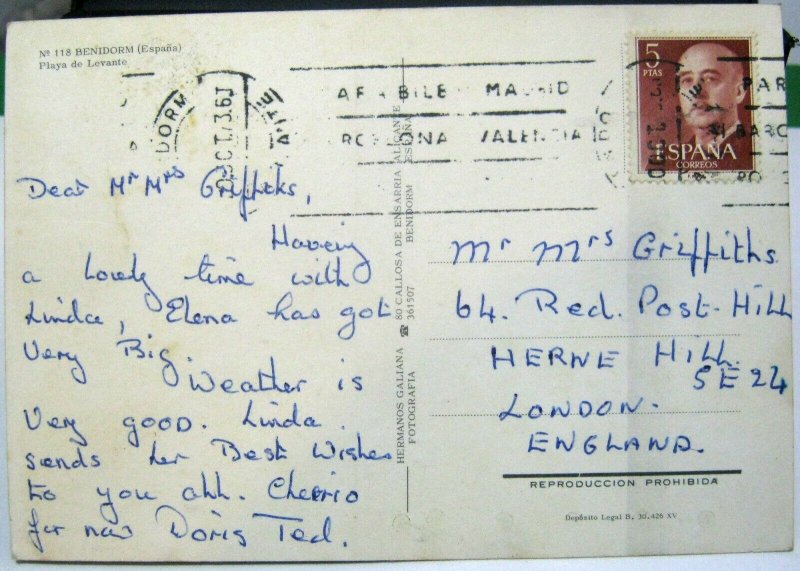 Nº 118 BENIDORM (España)
Playa de Levante
Dear Mr Mrs Griffiths,
Having
a lovely time with
Linda, Elena has got
Very Big.
Weather is
Very good. Linda.
sends her Best Wishes
to you all. Cheerio
for now Doris Ted.
HERMANOS GALIANA ☎ 80 CALLOSA DE ENSARRIA ALICANTE
FOTOGRAFIA 361507 BENIDORM ESPAÑA
MADRID
VALENCIA
PAR
BARC
5
PTAS
ESPAÑA
CORREOS
Mr Mrs Griffiths
64. Red. Post-Hill
HERNE Hill.
SE 24
LONDON.
ENGLAND.
REPRODUCCION PROHIBIDA
Depósito Legal B. 30.426 XV